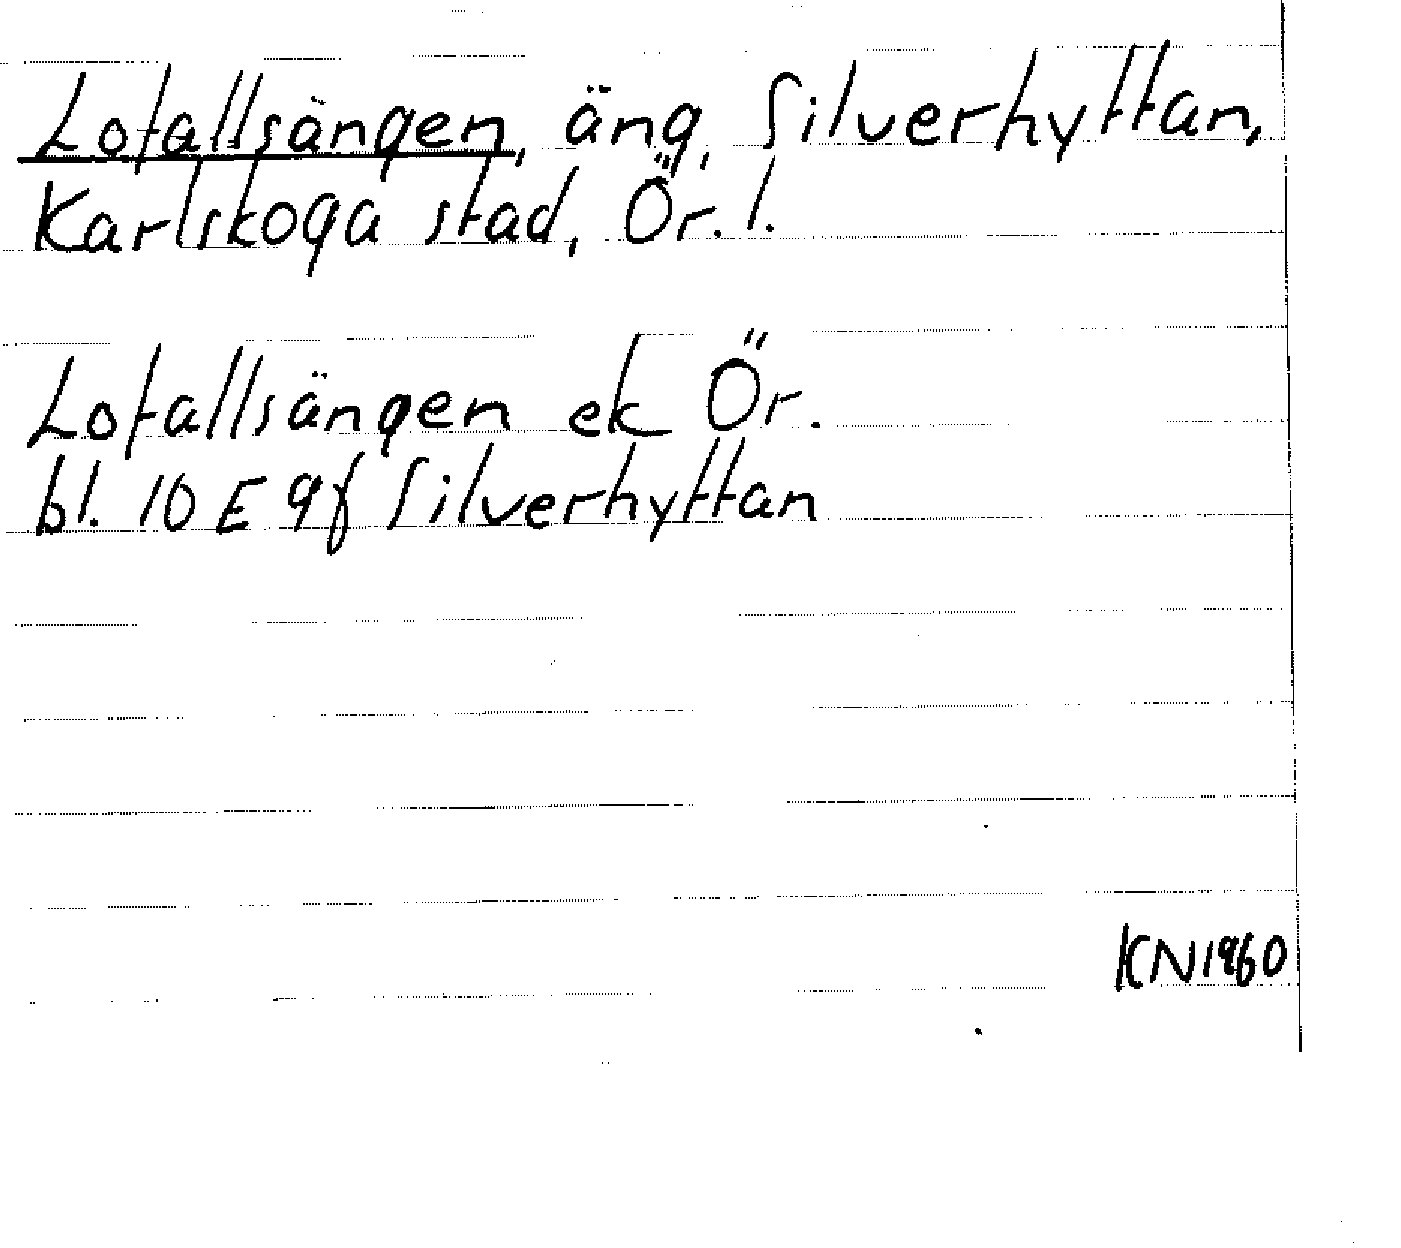 Lotallsängen, äng, Silverhyttan,
Karlskoga stad, Ör. l.
Lotallsängen ek Ör.
bl. 10 E 9f Silverhyttan
KN1960